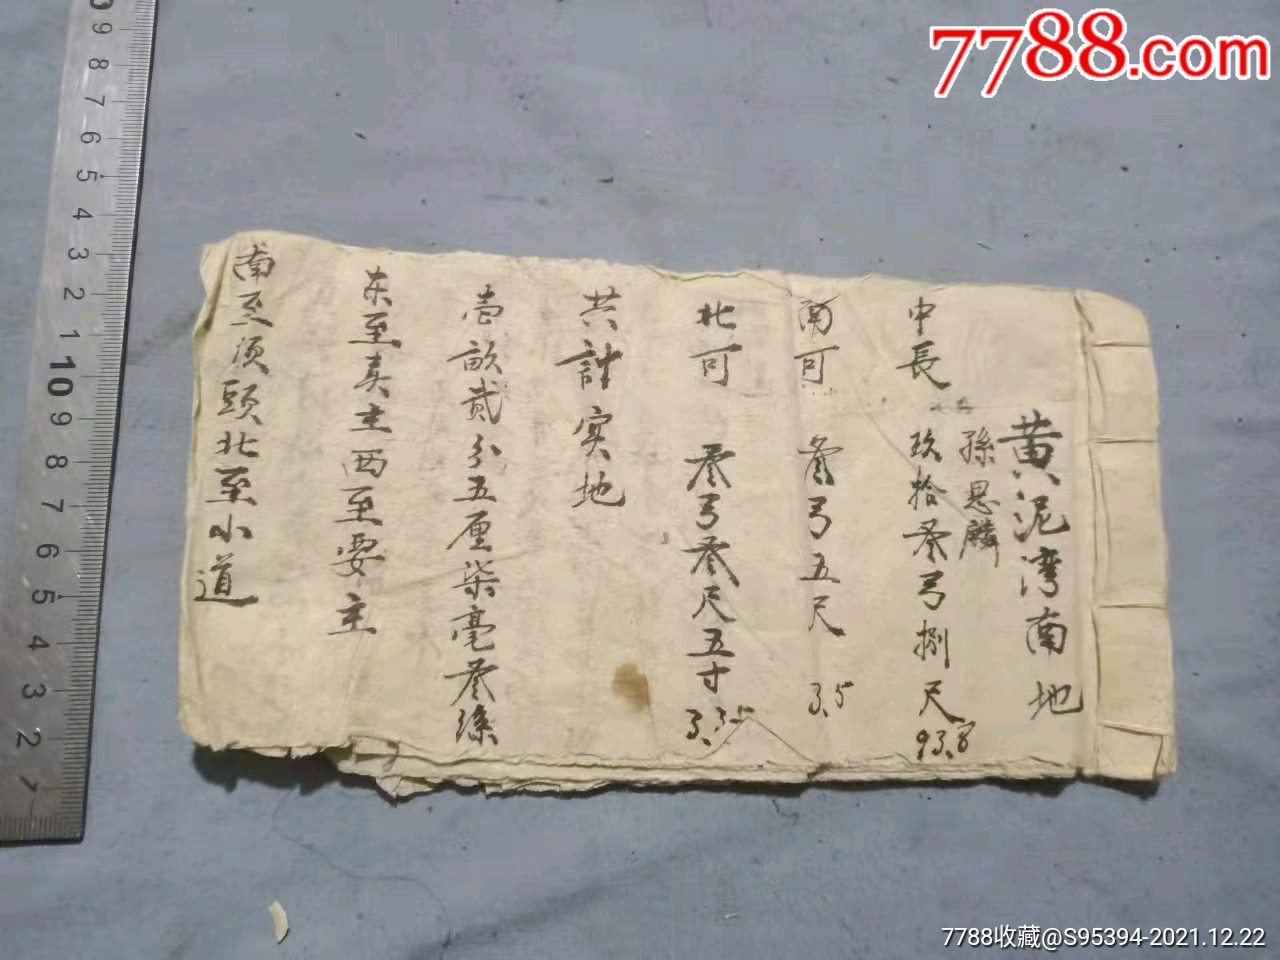 7788.com
黄泥湾南地
孫思麟
中長 玖拾叁弓捌尺 93.8
南可 叁弓五尺 3.5
北可 叁弓叁尺五寸 3.35
共計实地
壱畝貳分五厘柒毫叁絲
东至买主西至要主
南至须頭北至小道
0 9 8 7 6 5 4 3 2 1 10 9 8 7 6 5 4 3 2 1
7788收藏@S95394-2021.12.22